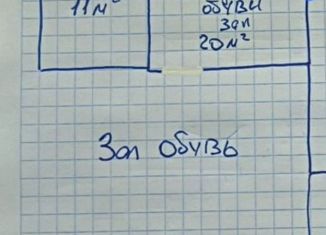 11 м²
обуви
зал
20 м²
Зал обувь